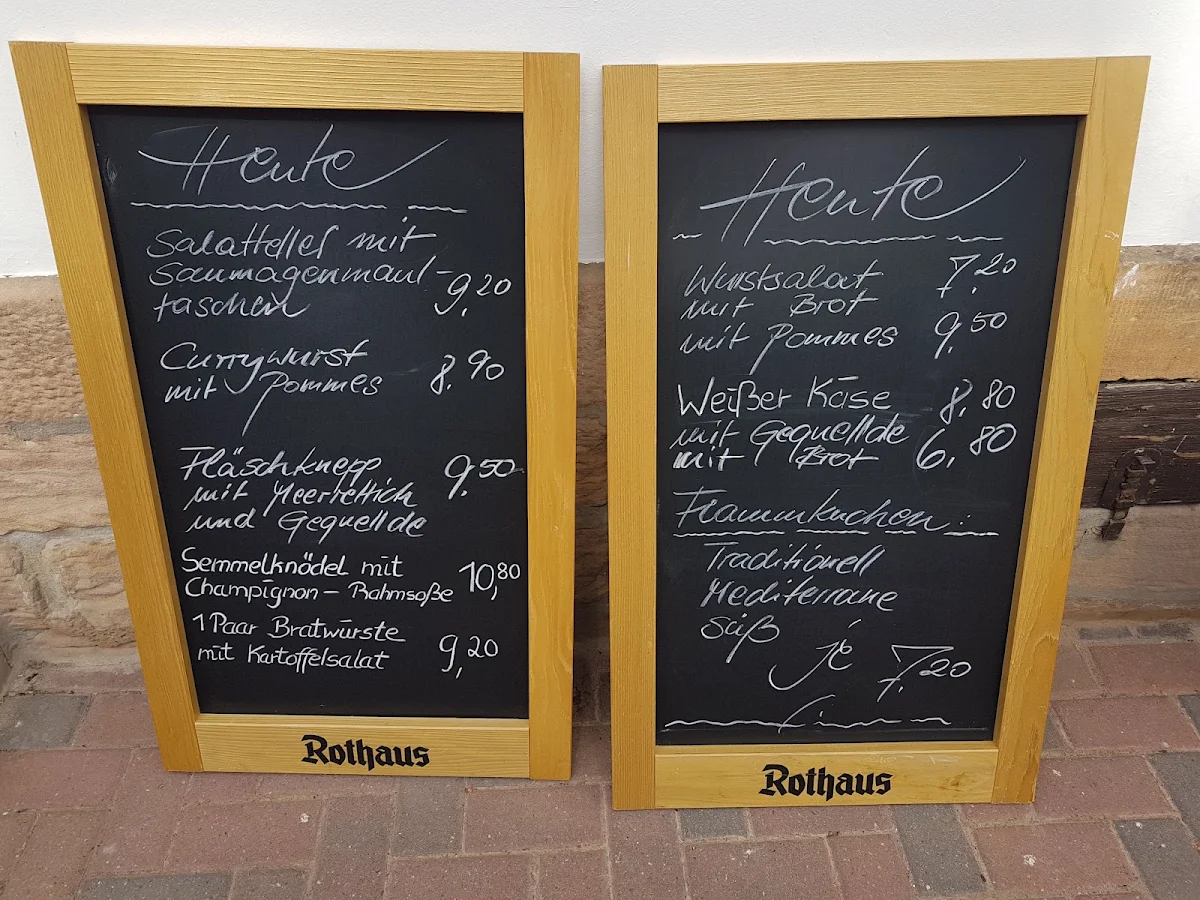 Heute
Salatteller mit
Saumagenmaul-
taschen 9,20
Currywurst
mit Pommes 8,90
Fläschknepp 9,50
mit Meerrettich
und Gequellde
Semmelknödel mit
Champignon-Rahmsoße 10,80
1 Paar Bratwürste
mit Kartoffelsalat 9,20
Rothaus
Heute
Wurstsalat 7,20
mit Brot
mit Pommes 9,50
Weißer Käse
mit Gequellde 8,80
mit Brot 6,80
Flammkuchen:
Traditionell
Mediterrane
Süß
jé 7,20
Rothaus